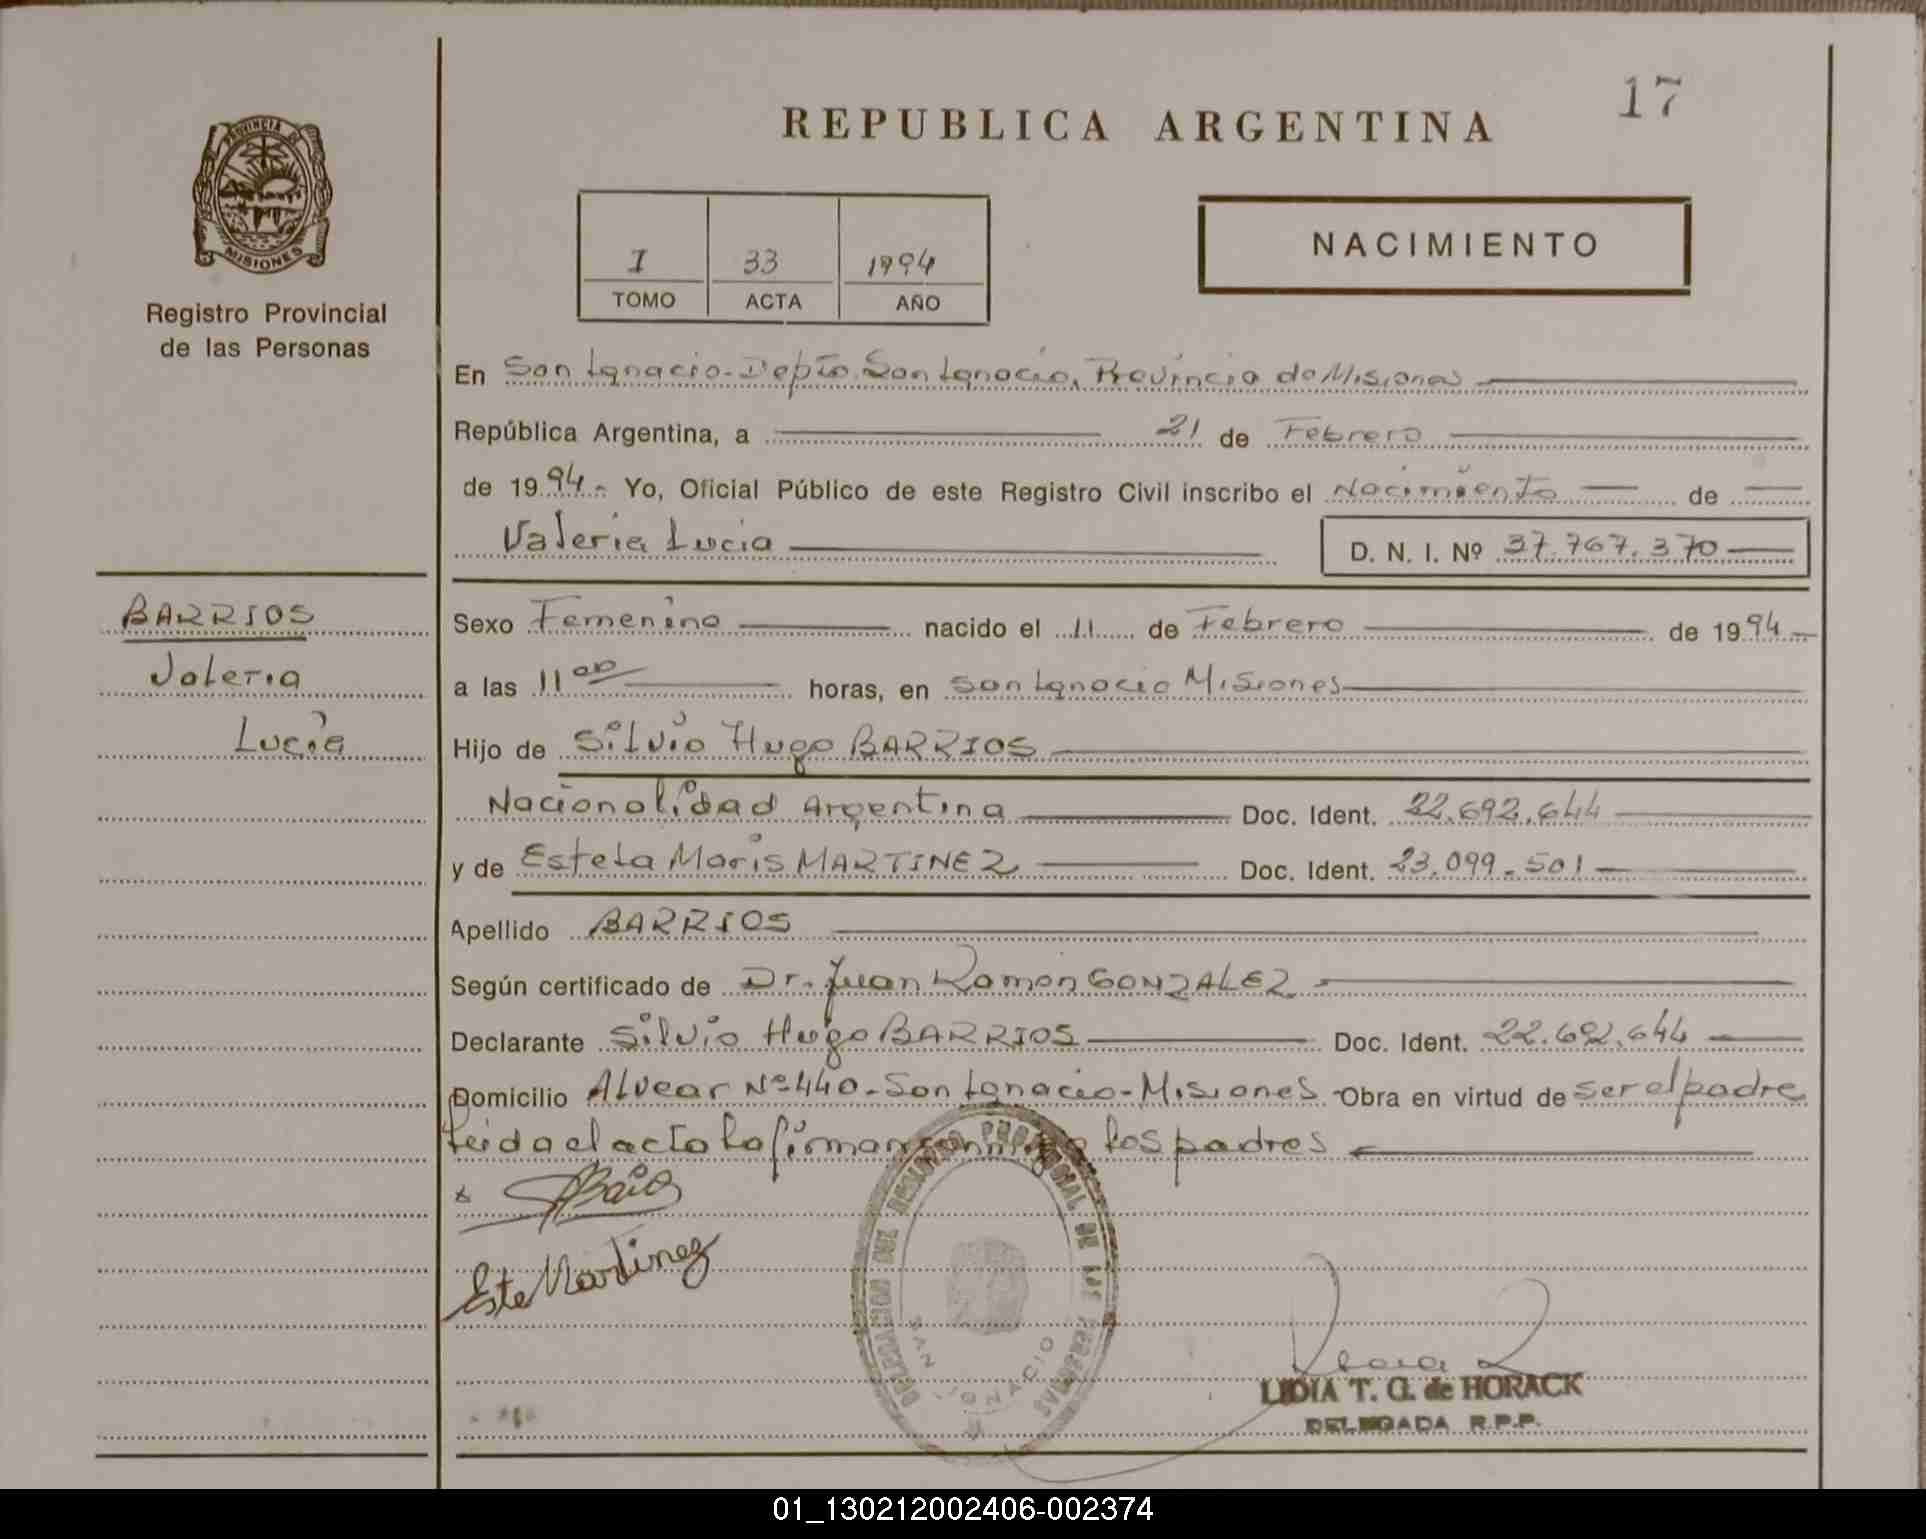 17
REPUBLICA ARGENTINA
PROVINCIA DE
MISIONES
Registro Provincial
de las Personas
I 33 1994
TOMO ACTA AÑO
NACIMIENTO
En San Ignacio - Depto. San Ignacio, Provincia de Misiones
República Argentina, a 21 de Febrero
de 1994.- Yo, Oficial Público de este Registro Civil inscribo el Nacimiento de
Valeria Lucia D. N. I. Nº 37.767.370
BARRIOS
Valeria
Lucia
Sexo Femenino nacido el 11 de Febrero de 1994
a las 11 00 horas, en San Ignacio Misiones
Hijo de Silvio Hugo BARRIOS
Nacionalidad Argentina Doc. Ident. 22.692.644
y de Estela Maris MARTINEZ Doc. Ident. 23.099.501
Apellido BARRIOS
Según certificado de Dr. Juan Ramón GONZALEZ
Declarante Silvio Hugo BARRIOS Doc. Ident. 22.692.644
Domicilio Alvear Nº 440 - San Ignacio - Misiones - Obra en virtud de ser el padre
leida el acta la firman conmigo los padres
Este Martinez
DELEGACION DEL REGISTRO PROVINCIAL DE LAS PERSONAS
SAN IGNACIO
LIDIA T. G. de HORACK
DELEGADA R.P.P.
01_130212002406-002374